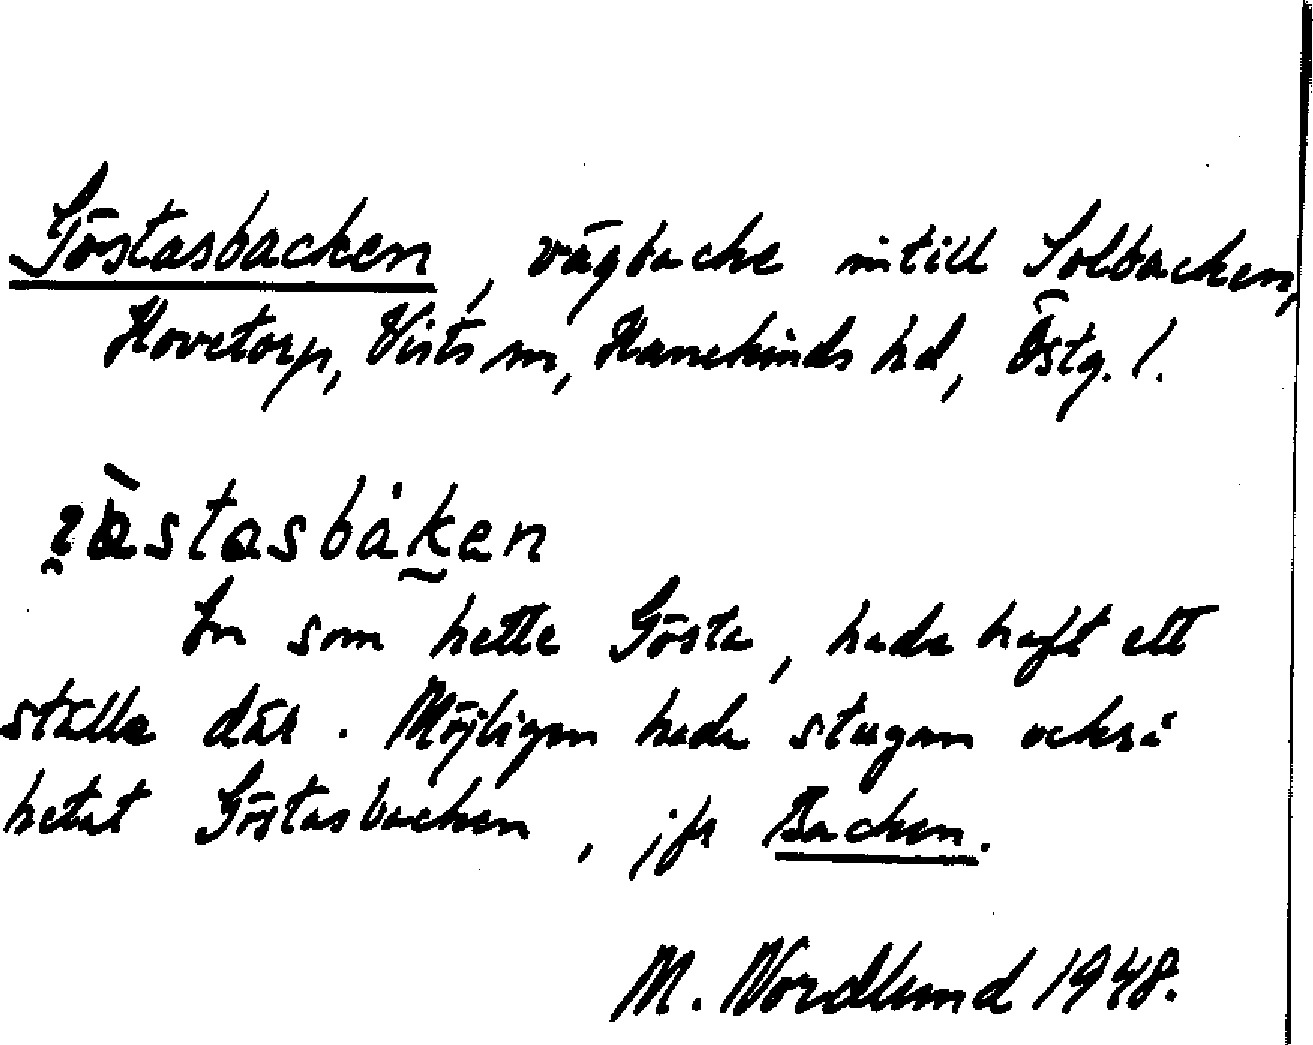 Göstasbacken, vägbacke intill Solbacken,
Hovetorp, Vists sn, Hanekinds hd, Östg. l.
åstasbåken
En som hette Gösta, hade haft ett
ställe där. Möjligen hade stugan också
hetat Göstasbacken, jfr Backen.
M. Nordlund 1948.